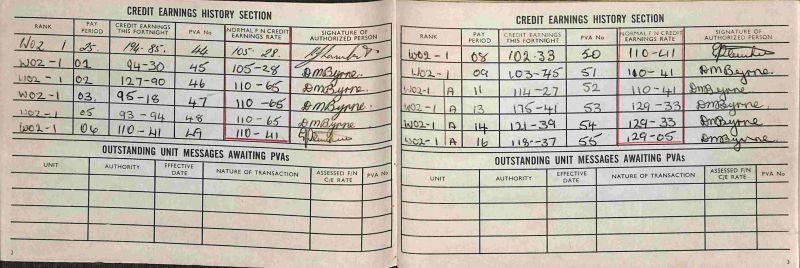 CREDIT EARNINGS HISTORY SECTION
RANK PAY PERIOD CREDIT EARNINGS THIS FORTNIGHT PVA No NORMAL F N CREDIT EARNINGS RATE SIGNATURE OF AUTHORIZED PERSON
WO2 1 25. 194-85. 44 105-28
WO2-1 01 94-30 45 105-28 DMByrne.
WO2-1 02 127-90 46 110-65 DMByrne.
WO2-1 03. 95-18 47 110-65 DMByrne.
WO2-1 05 93-94 48 110-65 DMByrne.
WO2-1 06 110-41 49 110-41
OUTSTANDING UNIT MESSAGES AWAITING PVAs
UNIT AUTHORITY EFFECTIVE DATE NATURE OF TRANSACTION ASSESSED F/N C/E RATE PVA No
2
CREDIT EARNINGS HISTORY SECTION
RANK PAY PERIOD CREDIT EARNINGS THIS FORTNIGHT PVA No NORMAL F N CREDIT EARNINGS RATE SIGNATURE OF AUTHORIZED PERSON
WO2-1 08 102-33 50 110-41
WO2-1 09 103-45 51 110-41 DMByrne.
WO2-1 A 11 114-27 52 110-41 DMByrne
WO2-1 A 13 175-41 53 129-33 DMByrne
WO2-1 A 14 121-39 54 129-33 DMByrne
WO2-1 A 16 118-37 55 129-05 DMByrne.
OUTSTANDING UNIT MESSAGES AWAITING PVAs
UNIT AUTHORITY EFFECTIVE DATE NATURE OF TRANSACTION ASSESSED F/N C/E RATE PVA No
3